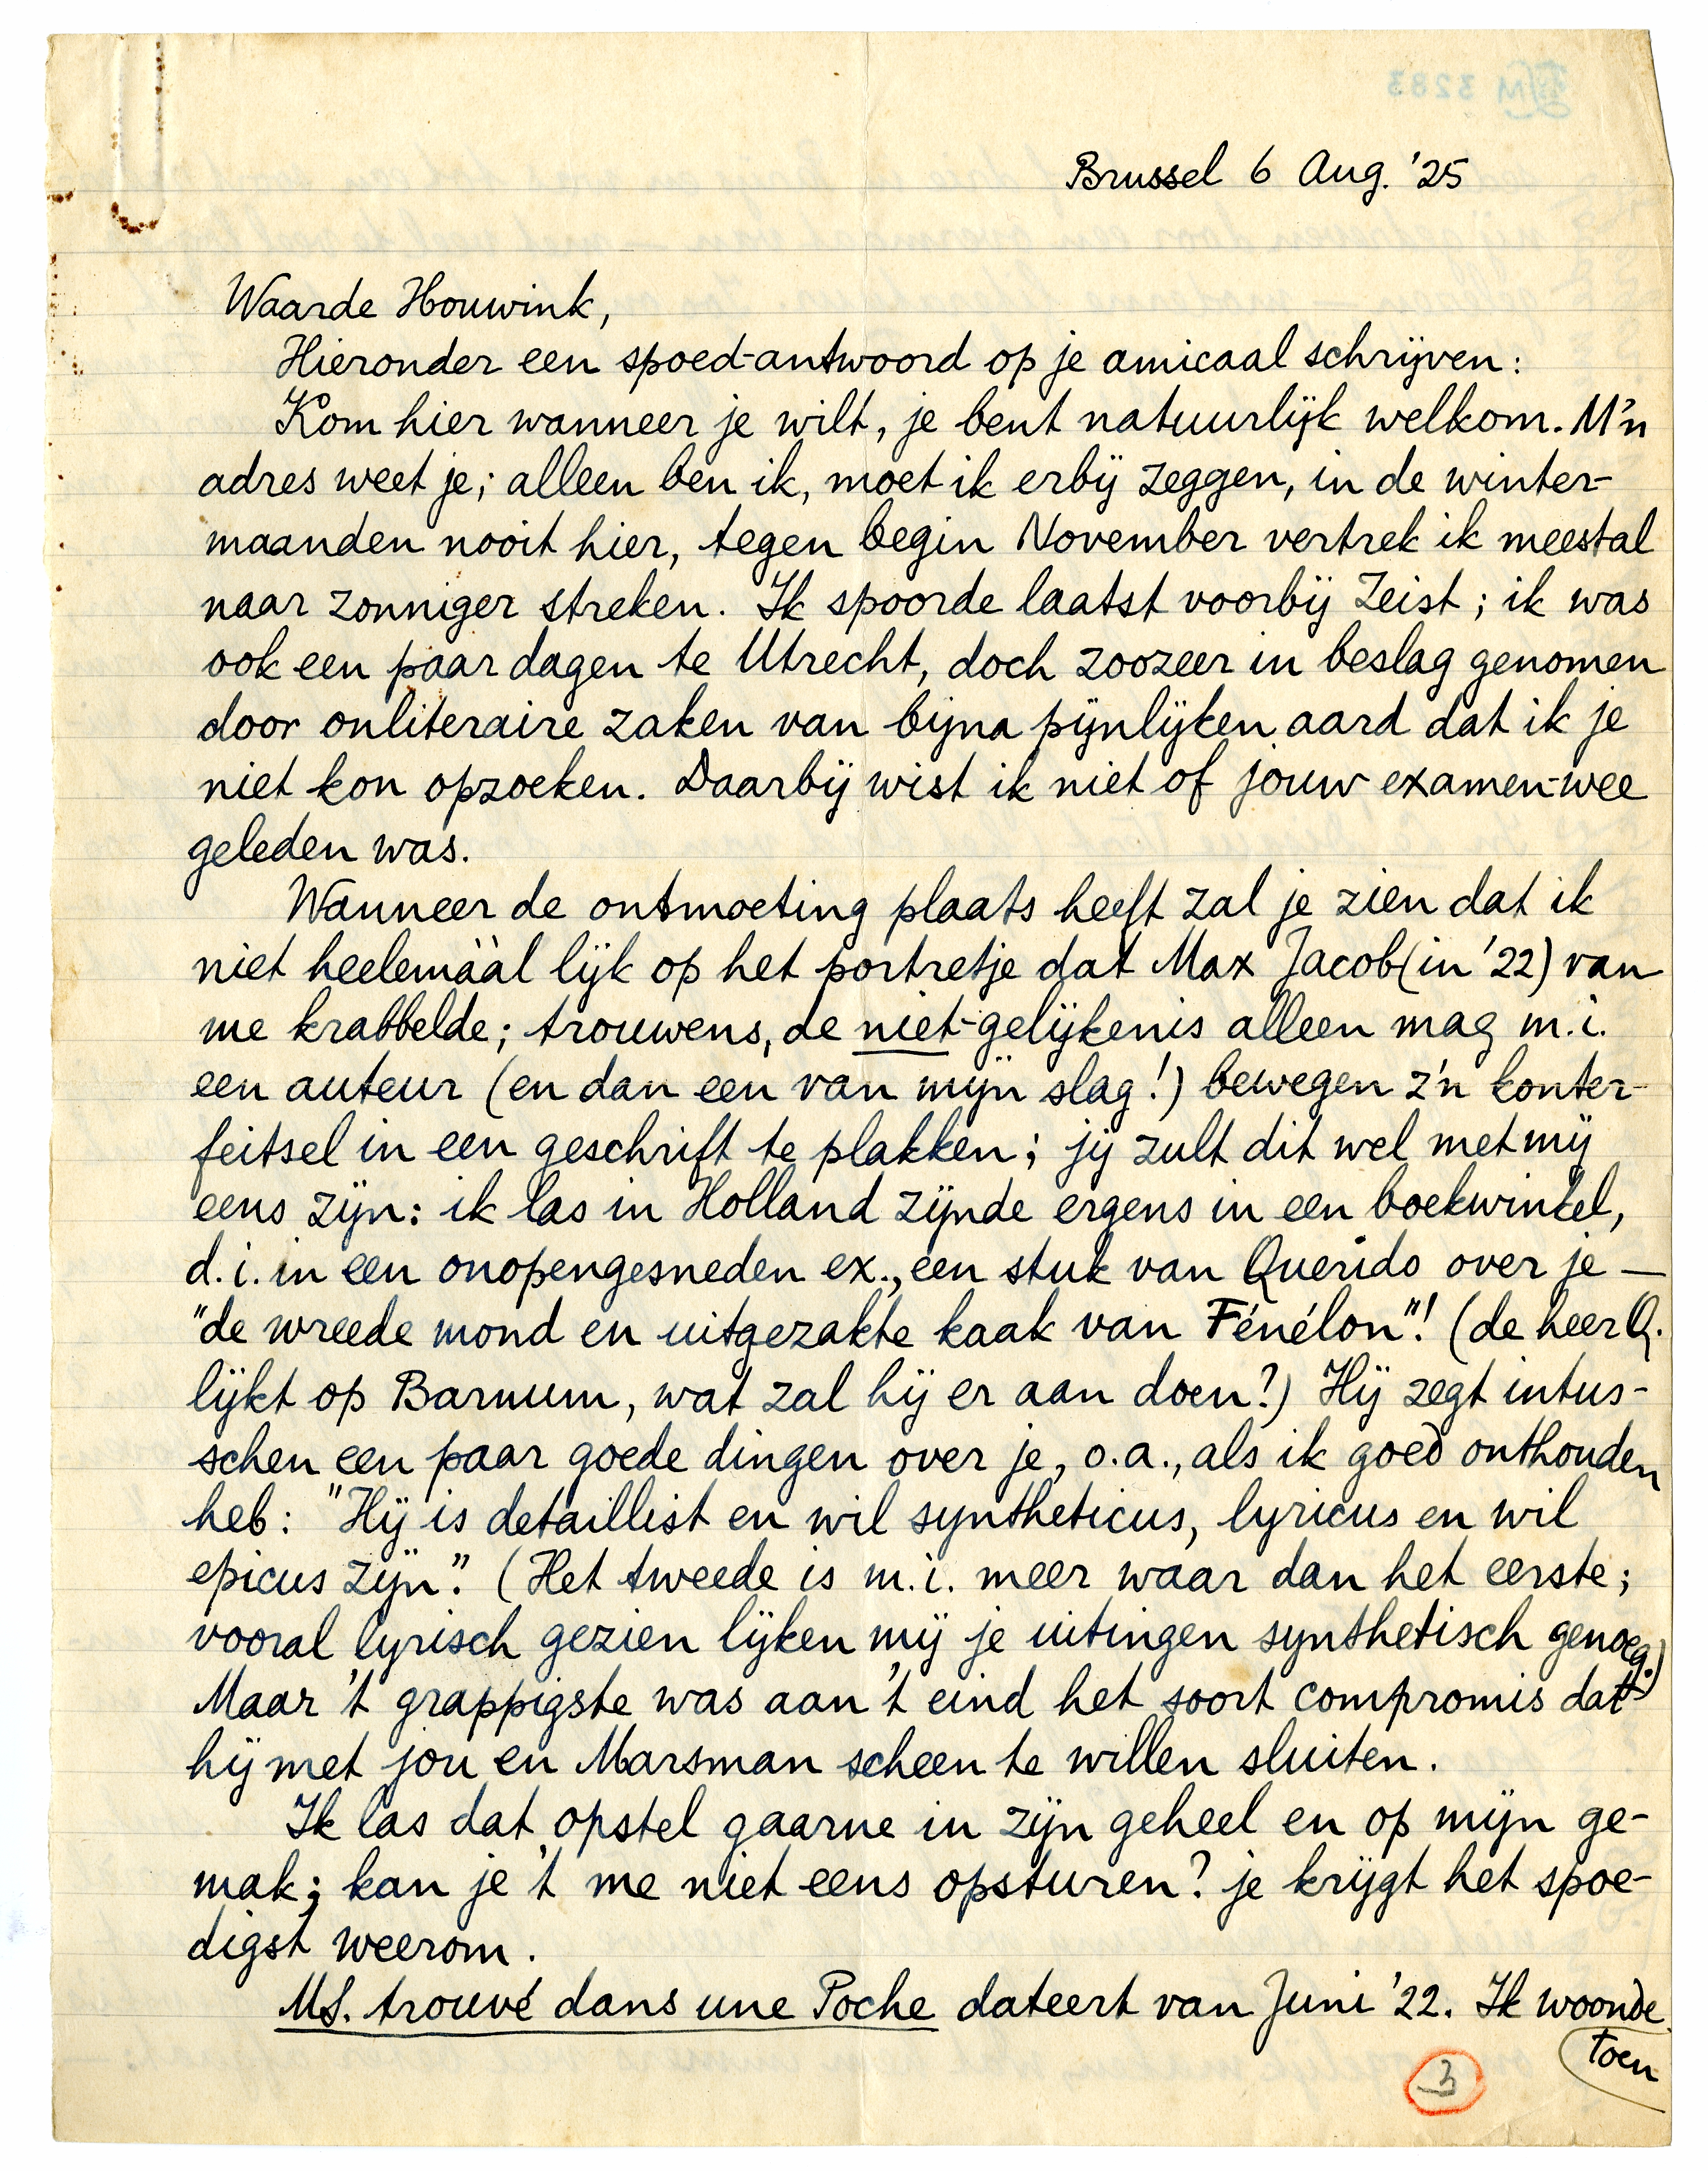 Brussel 6 Aug. '25
Waarde Houwink,
Hieronder een spoed-antwoord op je amicaal schrijven:
Kom hier wanneer je wilt, je bent natuurlijk welkom. M'n
adres weet je; alleen ben ik, moet ik erbij zeggen, in de winter-
maanden nooit hier, tegen begin November vertrek ik meestal
naar zonniger streken. Ik spoorde laatst voorbij Zeist; ik was
ook een paar dagen te Utrecht, doch zoozeer in beslag genomen
door onliteraire zaken van bijna pijnlijken aard dat ik je
niet kon opzoeken. Daarbij wist ik niet of jouw examen-wee
geleden was.
Wanneer de ontmoeting plaats heeft zal je zien dat ik
niet heelemààl lijk op het portretje dat Max Jacob (in '22) van
me krabbelde; trouwens, de niet-gelijkenis alleen mag m.i.
een auteur (en dan een van mijn slag!) bewegen z'n konter-
feitsel in een geschrift te plakken; jij zult dit wel met mij
eens zijn: ik las in Holland zijnde ergens in een boekwinkel,
d.i. in een onopengesneden ex., een stuk van Querido over je —
"de wreede mond en uitgezakte kaak van Fénélon"! (de heer Q.
lijkt op Barnum, wat zal hij er aan doen?) Hij zegt intus-
schen een paar goede dingen over je, o.a., als ik goed onthouden
heb: "Hij is detaillist en wil syntheticus, lyricus en wil
epicus zijn." (Het tweede is m.i. meer waar dan het eerste;
vooral lyrisch gezien lijken mij je uitingen synthetisch genoeg.)
Maar 't grappigste was aan 't eind het soort compromis dat
hij met jou en Marsman scheen te willen sluiten.
Ik las dat opstel gaarne in zijn geheel en op mijn ge-
mak; kan je 't me niet eens opsturen? je krijgt het spoe-
digst weerom.
MS. trouvé dans une Poche dateert van Juni '22. Ik woonde
toen
3